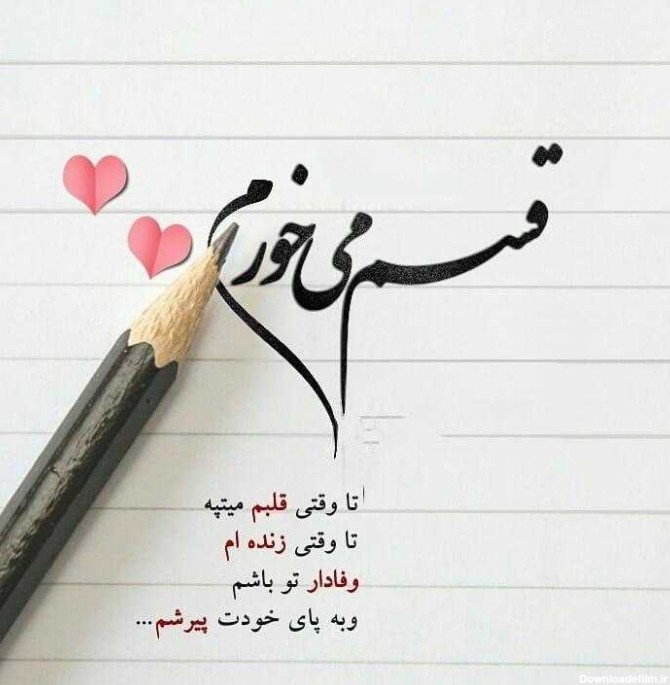 قسم می خورم
تا وقتی قلبم میتپه
تا وقتی زنده ام
وفادار تو باشم
وبه پای خودت پیرشم...
Downloadefilm.ir